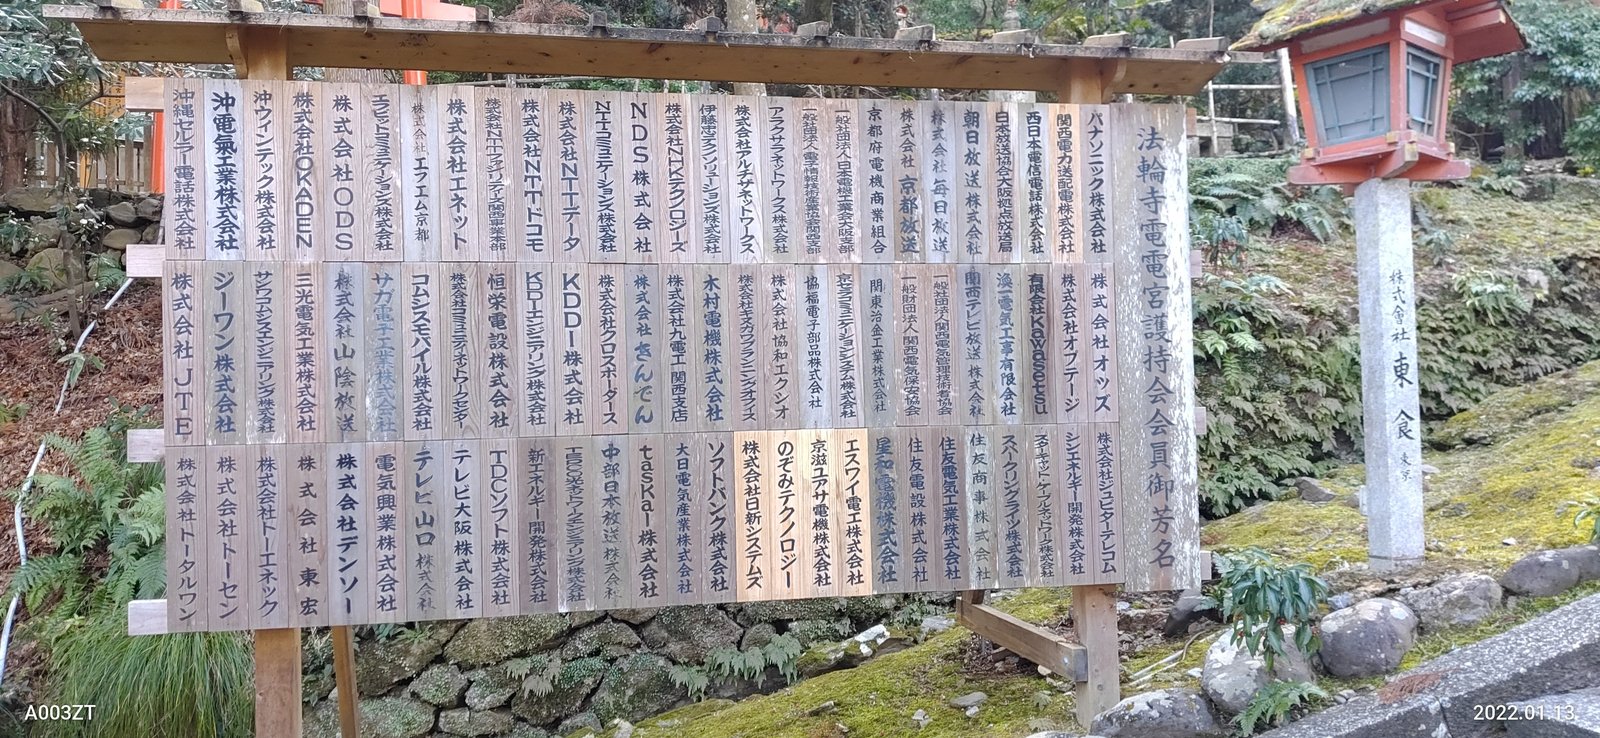 法輪寺電電宮護持会会員御芳名
パナソニック株式会社
関西電力送配電株式会社
西日本電信電話株式会社
日本放送協会大阪拠点放送局
朝日放送株式会社
株式会社毎日放送
株式会社京都放送
京都府電機商業組合
一般社団法人日本電機工業会大阪支部
一般社団法人電子情報技術産業協会関西支部
アラクサラネットワークス株式会社
株式会社アルチザネットワークス
伊藤忠テクノソリューションズ株式会社
株式会社NHKテクノロジーズ
NDS株式会社
NTTコミュニケーションズ株式会社
株式会社NTTデータ
株式会社NTTドコモ
株式会社NTTファシリティーズ関西事業本部
株式会社エネット
株式会社エフエム京都
エクシオコミュニケーションズ株式会社
株式会社ODS
株式会社OKADEN
沖ウィンテック株式会社
沖電氣工業株式会社
沖縄セルラー電話株式会社
株式会社オッズ
株式会社オプテージ
有限会社Kawasetsu
渙電気工事有限会社
関西テレビ放送株式会社
一般社団法人関西電気管理技術者協会
一般財団法人関西電気保安協会
関東冶金工業株式会社
京セラコミュニケーションシステム株式会社
協福電子部品株式会社
株式会社協和エクシオ
株式会社キズガワプランニングオフィス
木村電機株式会社
株式会社九電工関西支店
株式会社きんでん
株式会社クロスボーダーズ
KDDI株式会社
KDDIエンジニアリング株式会社
恒栄電設株式会社
株式会社コミュニティネットワークセンター
コムシスモバイル株式会社
サガ電子工業株式会社
株式会社山陰放送
三光電気工業株式会社
サンワコムシスエンジニアリング株式会社
ジーワン株式会社
株式会社JTE
株式会社ジュピターテレコム
シンエネルギー開発株式会社
スターキャット・ケーブルネットワーク株式会社
スパークリングライツ株式会社
住友商事株式会社
住友電気工業株式会社
住友電設株式会社
星和電機株式会社
エスワイ電工株式会社
京滋ユアサ電機株式会社
のぞみテクノロジー
株式会社日新システムズ
ソフトバンク株式会社
大日電気産業株式会社
taska株式会社
中部日本放送株式会社
新エネルギー開発株式会社
TDCソフト株式会社
テレビ大阪株式会社
テレビ山口株式会社
電気興業株式会社
株式会社デンソー
株式会社東宏
株式会社トーエネック
株式会社トーセン
株式会社トータルワン
株式會社東食東京
A003ZT
2022.01.13